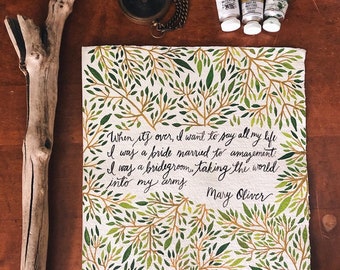 When it's over, I want to say all my life
I was a bride married to amazement
I was a bridegroom, taking the world
into my arms
Mary Oliver